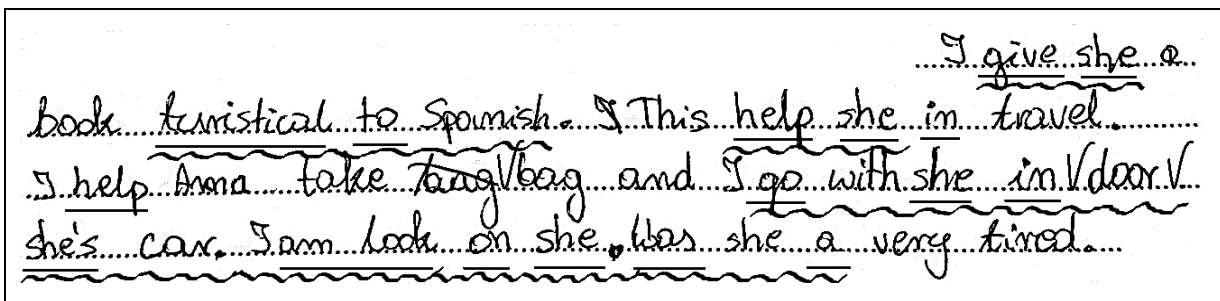 I give she a
book turistical to Spanish. I This help she in travel.
I help Anna take baag √ bag and I go with she in √ door √
she's car. I am look on she. Was she a very tired.